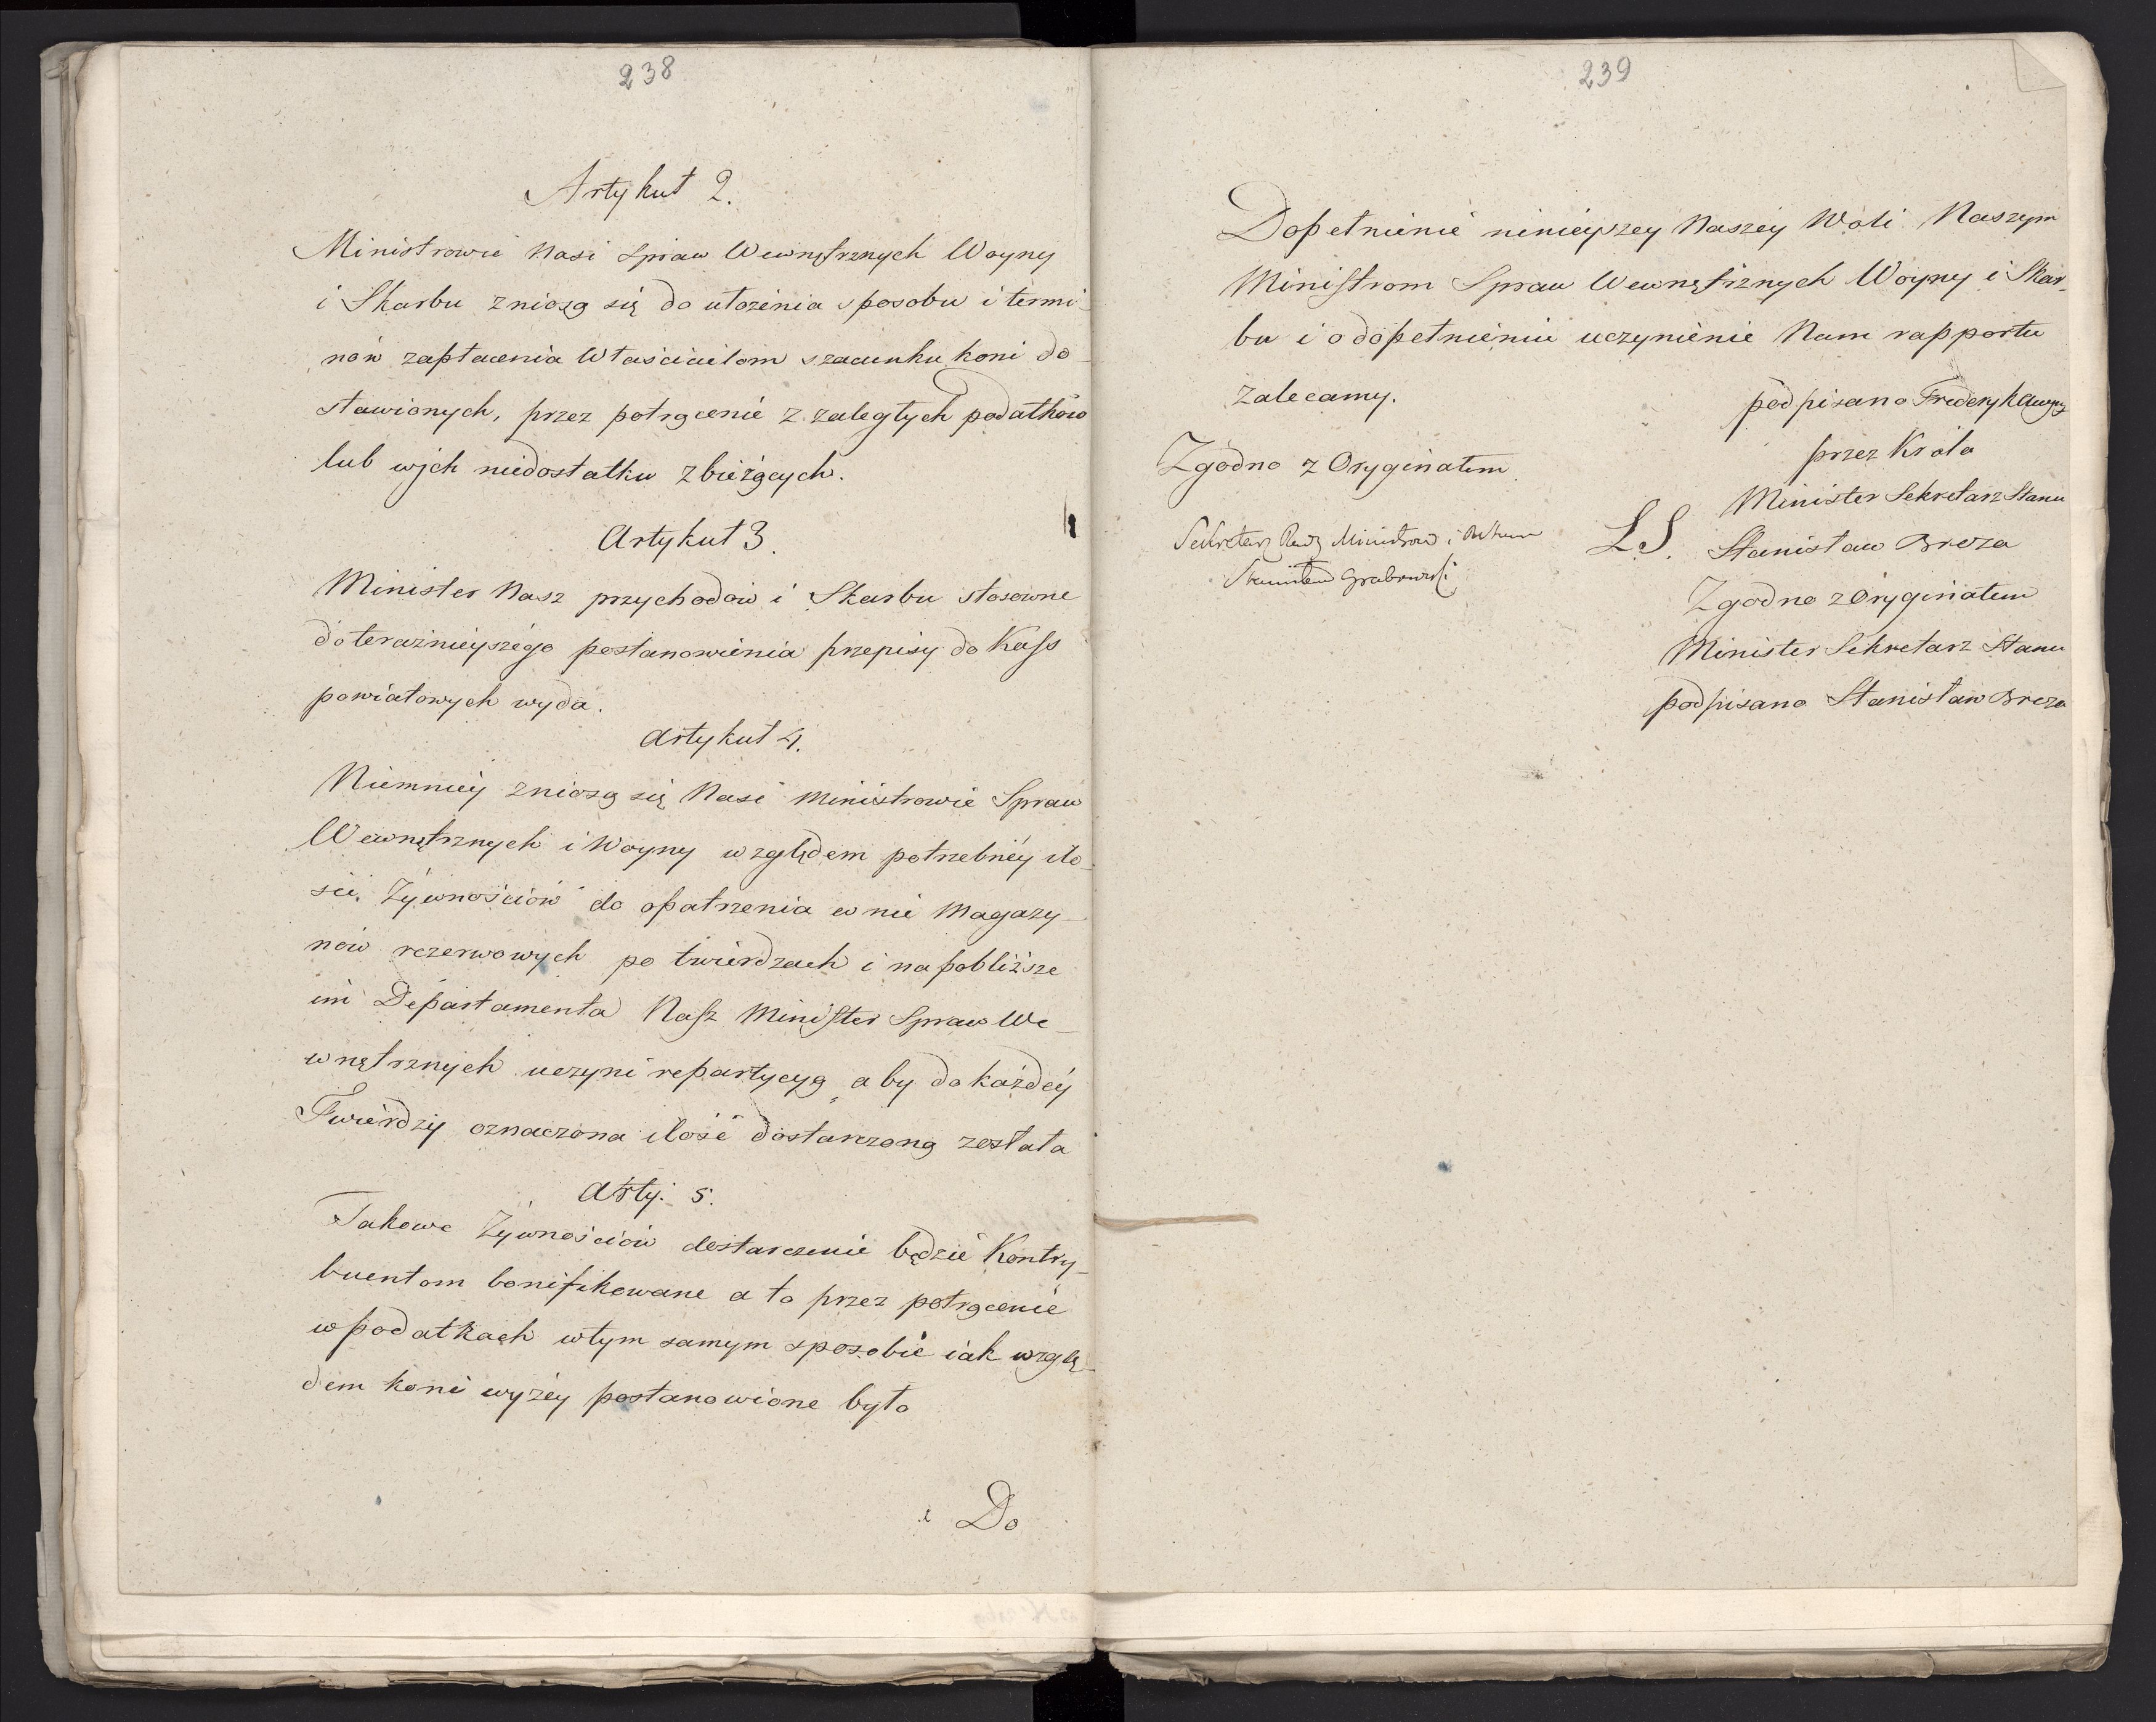 238
Artykuł 2.
Ministrowie Nasi Spraw Wewnętrznych Woyny
i Skarbu zniosą się do ułożenia sposobu i termi
nów zapłacenia Właścicielom szacunku koni do
stawionych, przez potrącenie z zaległych podatków
lub wich niedostatku zbieżących.
Artykuł 3.
Minister Nasz przychodów i Skarbu stosowne
do teraźnieyszego postanowienia przepisy do Kass
powiatowych wyda.
Artykuł 4.
Niemniey zniosą się Nasi Ministrowie Spraw
Wewnętrznych i Woyny względem potrzebnéy ilo
ści Żywnościów do opatrzenia w nie Magazy
nów rezerwowych po twierdzach i na pobliższe
im Departamenta Nasz Minister Spraw We
wnętrznych uczyni repartycyą aby do każdéy
Twierdzy oznaczona ilość dostarczoną została
Arty. 5.
Takowe Żywnościów dostarczenie będzie Kontry
buentom bonifikowane a to przez potrącenie
w podatkach wtym samym sposobie iak wzglę
dem koni wyżéy postanowione było
Do
239
Dopełnienie ninieyszey Naszéy Woli Naszym
Ministrom Spraw Wewnętrznych Woyny i Skar
bu i o dopełnieniu uczynienie Nam rapportu
zalecamy.
podpisano Fryderyk August
przez Króla
Minister Sekretarz Stanu
L S. Stanisław Breza
Zgodno z Oryginałem
Minister Sekretarz Stanu
podpisano Stanisław Breza
Zgodno z Oryginałem
Sekretarz Rady Ministrów i Stanu
Stanisław Grabowski